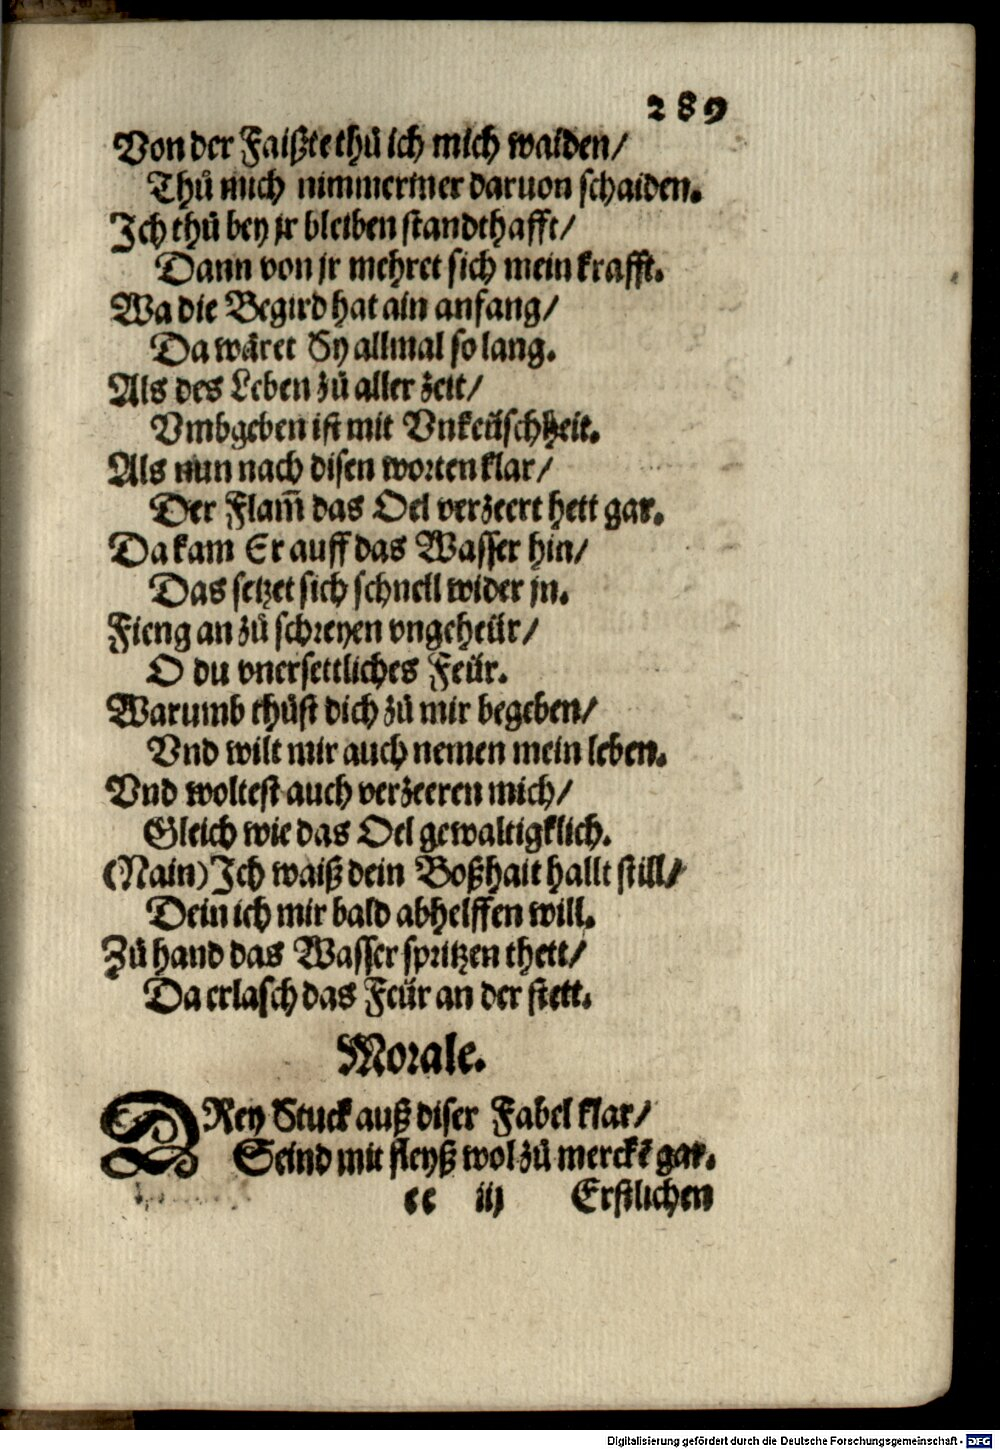 289
Von der Faißte thů ich mich waiden/
Thů mich nimmermer daruon schaiden.
Ich thů bey jr bleiben standthafft/
Dann von jr mehret sich mein krafft.
Wa die Begird hat ain anfang/
Da wäret Sy allmal so lang.
Als des Leben zů aller zeit/
Vmbgeben ist mit Vnkeüschheit.
Als nun nach disen worten klar/
Der Flam̅ das Oel verzeert hett gar.
Da kam Er auff das Wasser hin/
Das setzet sich schnell wider jn.
Fieng an zů schreyen vngeheür/
O du vnersettliches Feür.
Warumb thůst dich zů mir begeben/
Vnd wilt mir auch nemen mein leben.
Vnd woltest auch verzeeren mich/
Gleich wie das Oel gewaltigklich.
(Nain) Ich waiß dein Boßhait hallt still/
Dein ich mir bald abhelffen will.
Zů hand das Wasser spritzen thett/
Da erlasch das Feür an der stett.
Morale.
DRey Stuck auß diser Fabel klar/
Seind mit fleyß wol zů merckē gar.
cc iij Erstlichen
Digitalisierung gefördert durch die Deutsche Forschungsgemeinschaft - DFG